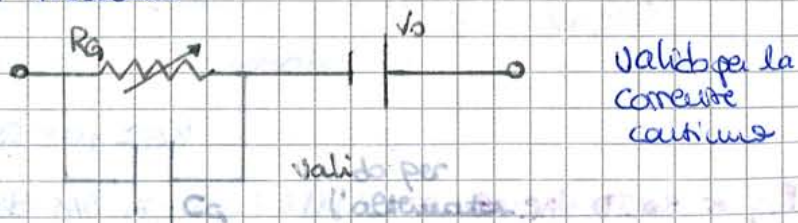 RG
Vo
valido per la
corrente
continua
valido per
CG l'alternata